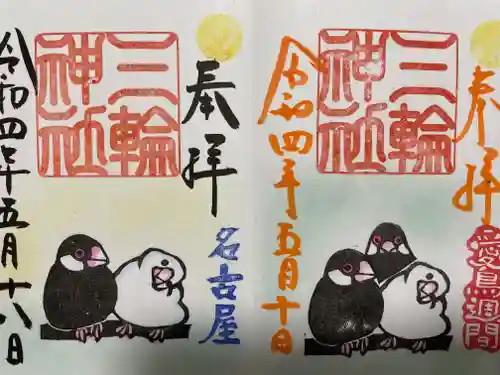 奉拝
三輪
神社
名古屋
令和四年五月十八日
奉拝
三輪
神社
愛鳥週間
令和四年五月十日